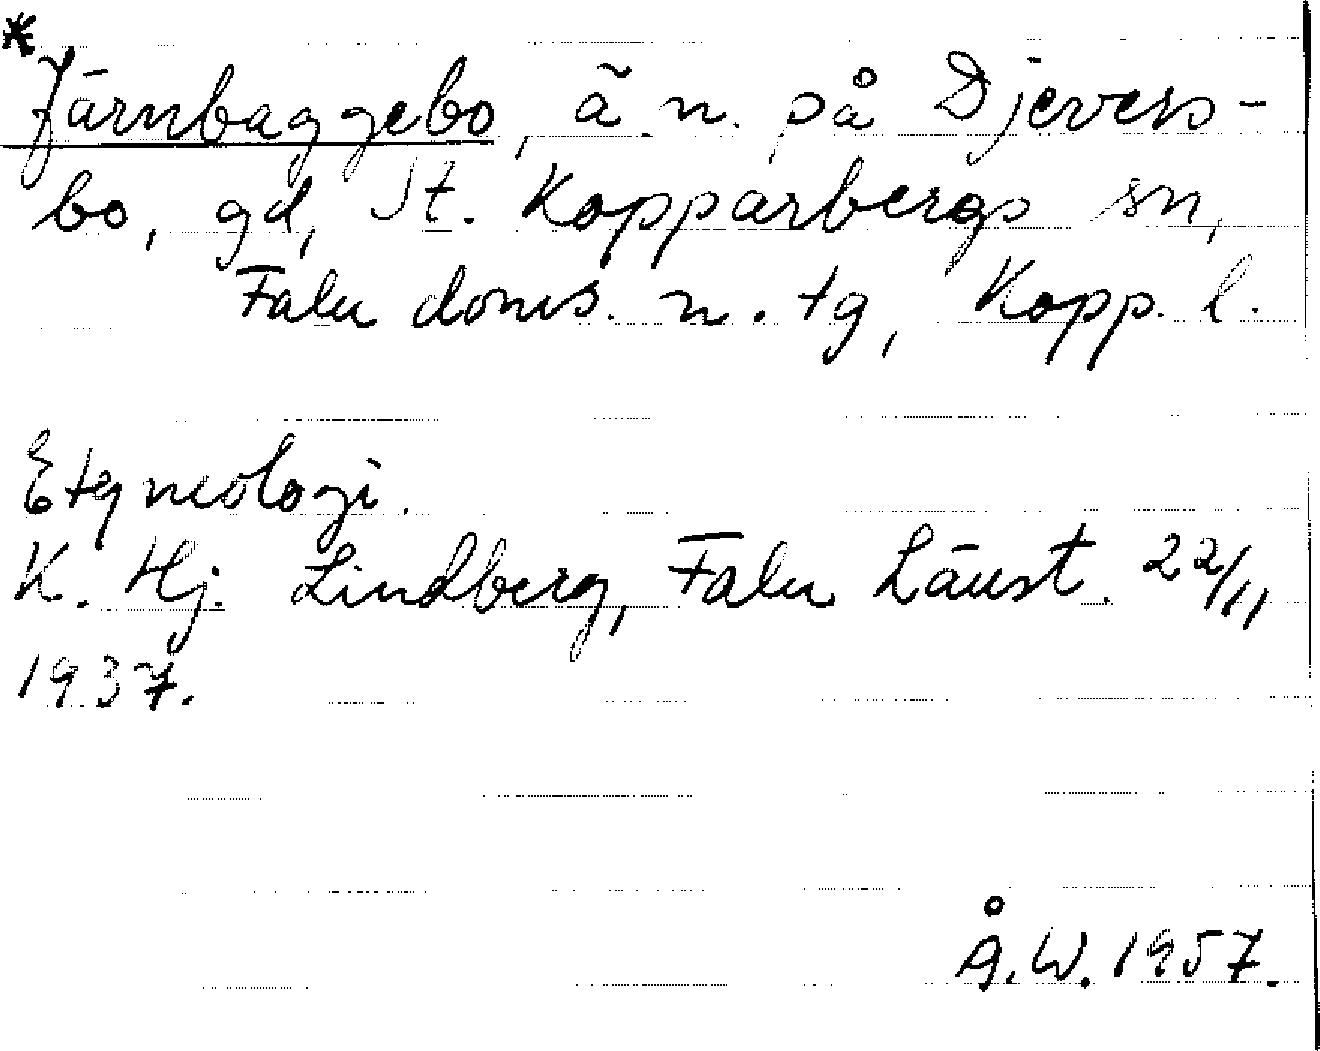 *
Järnbaggebo, ä.n. på Djevers-
bo, gd, St. Kopparbergs sn,
Falu doms. n. tg, Kopp. l.
Etymologi.
K. Hj. Lindberg, Falu Länst. 22/11
1937.
Å.W. 1957.